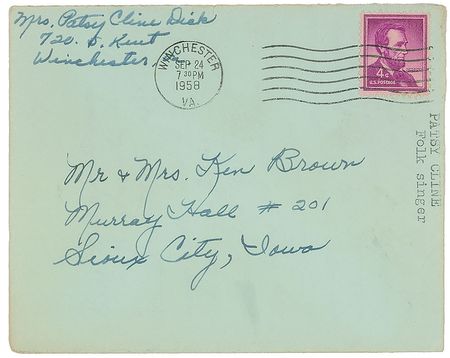 Mrs. Patsy Cline Dick
720. S. Kent
Winchester, Va.
WINCHESTER
SEP 24
7 30 PM
1958
VA.
4¢
U.S. POSTAGE
PATSY CLINE
Folk singer
Mr & Mrs. Ken Brown
Murray Hall # 201
Sioux City, Iowa